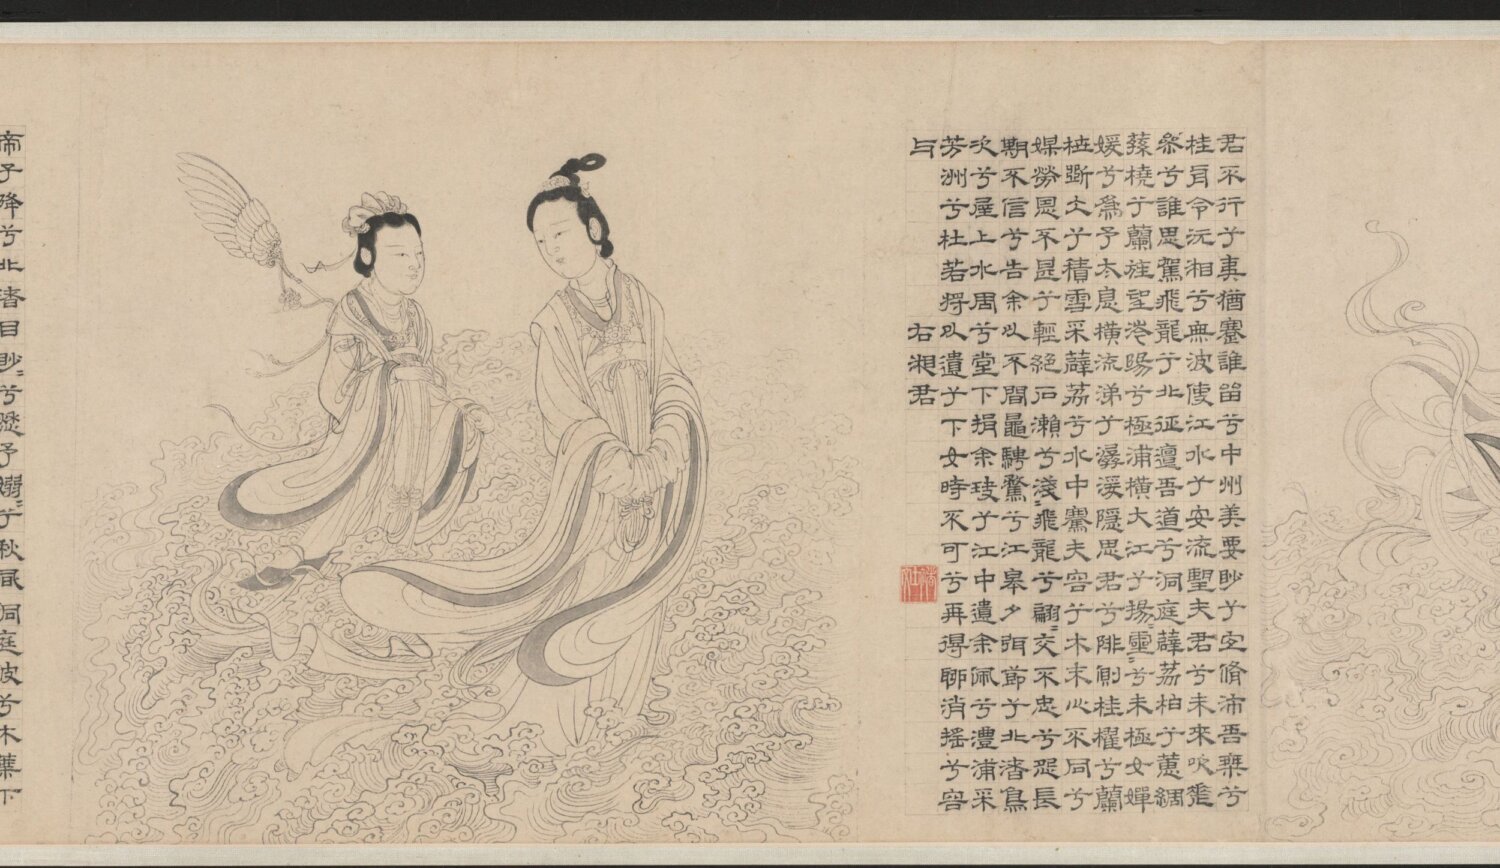 君不行兮夷猶蹇誰留兮中州美要眇兮宜脩沛吾乘兮
桂舟令沅湘兮無波使江水兮安流望夫君兮未來吹參
差兮誰思駕飛龍兮北征邅吾道兮洞庭薜荔柏兮蕙綢
蓀橈兮蘭旌望涔陽兮極浦橫大江兮揚〻靈〻兮未極女嬋
媛兮為予太息橫流涕兮潺湲隱思君兮陫側桂櫂兮蘭
枻斲冰兮積雪采薜荔兮水中搴夫容兮木末心不同兮
媒勞恩不甚兮輕絕石瀨兮淺〻飛龍兮翩〻交不忠兮怨長
期不信兮告余以不間鼂騁騖兮江皋夕弭節兮北渚鳥
次兮屋上水周兮堂下捐余玦兮江中遺余佩兮澧浦采
芳洲兮杜若將以遺兮下女時不可兮再得聊消搖兮容
与
右湘君
帝子降兮北渚目眇〻兮愁予嫋〻兮秋風洞庭波兮木葉下